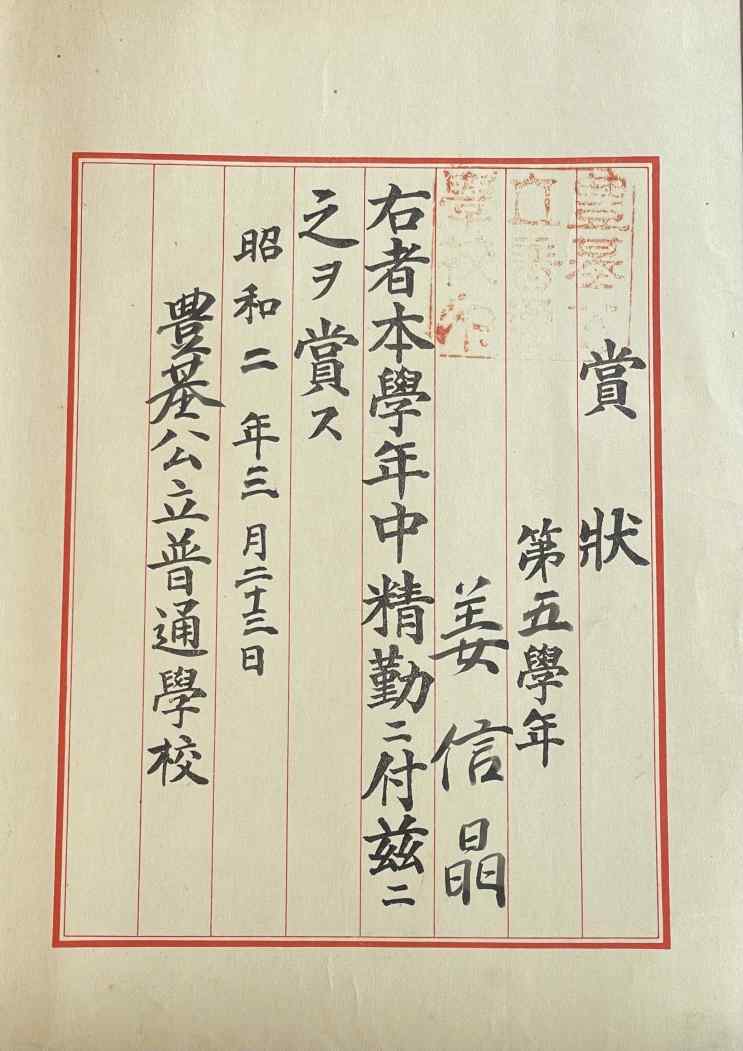 賞狀
第五學年
姜信晶
右者本學年中精勤ニ付茲ニ
之ヲ賞ス
昭和二年三月二十三日
豊基公立普通學校